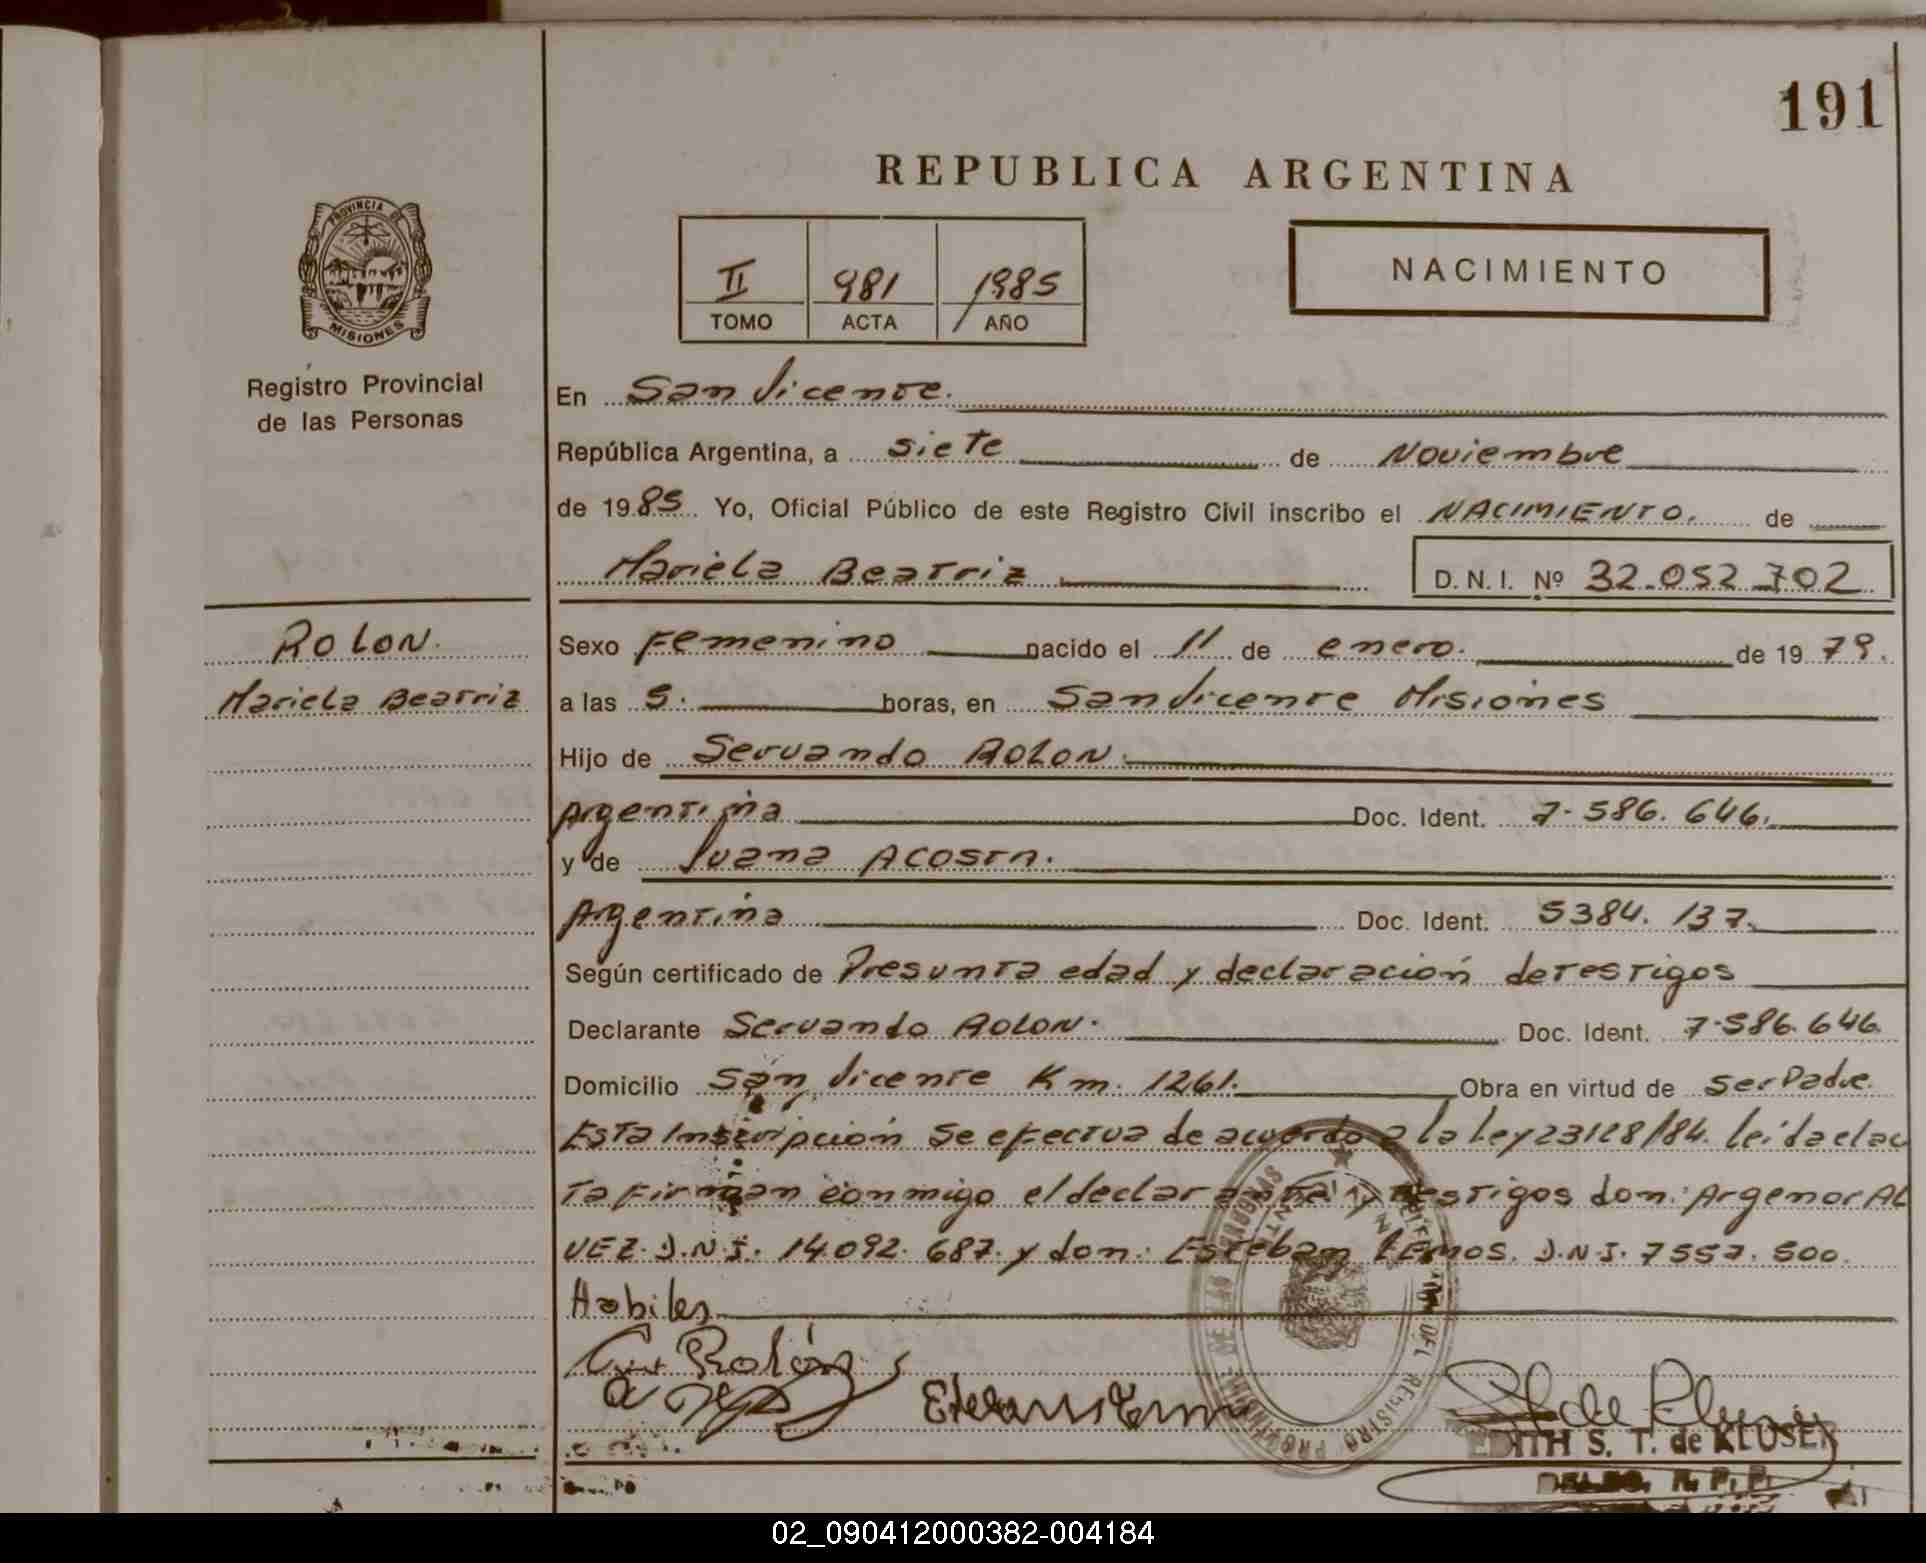 191
REPUBLICA ARGENTINA
PROVINCIA DE
MISIONES
Registro Provincial
de las Personas
II 981 1985
TOMO ACTA AÑO
NACIMIENTO
En San Vicente.
República Argentina, a siete de Noviembre
de 1985 Yo, Oficial Público de este Registro Civil inscribo el NACIMIENTO. de
Mariela Beatriz D.N.I. Nº 32.052.702
ROLON.
Mariela Beatriz
Sexo Femenino nacido el 11 de enero. de 1979.
a las 5. horas, en San Vicente Misiones
Hijo de Servando ROLON.
Argentina Doc. Ident. 7.586.646.
y de Juana ACOSTA.
Argentina Doc. Ident. 5384.137.
Según certificado de Presunta edad y declaración de testigos
Declarante Servando ROLON. Doc. Ident. 7.586.646.
Domicilio San Vicente Km. 1261. Obra en virtud de ser Padre.
Esta Inscripción se efectua de acuerdo a la Ley 23128/84. leída el ac
ta firman conmigo el declarante y testigos don: Argenor AL
VEZ. D.N.I. 14.092.687. y don: Esteban LEMOS. D.N.I. 7557.500.
Habiles
Rolón
EDITH S. T. de KLUSE
R. P. P.
02_090412000382-004184